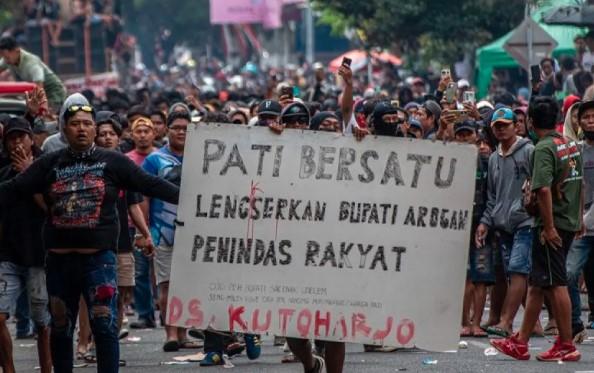 PATI BERSATU
LENGSERKAN BUPATI AROGAN
PENINDAS RAKYAT
DS. KUTOHARJO